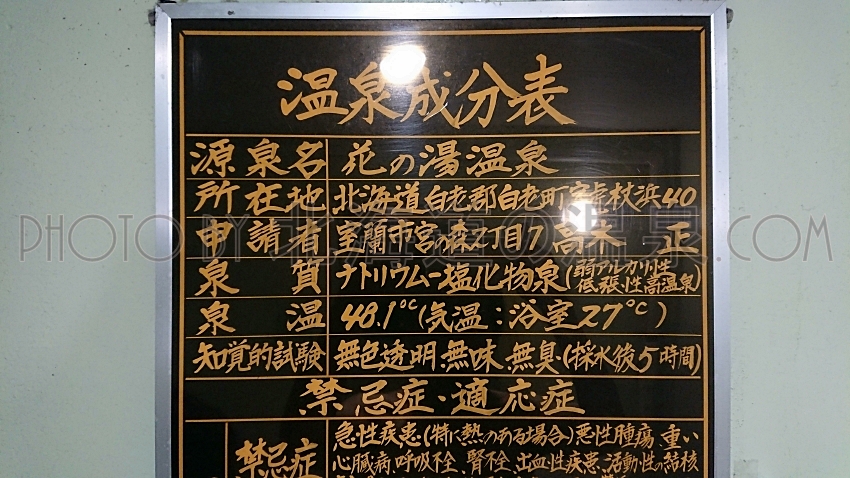 温泉成分表
源泉名 花の湯温泉
所在地 北海道白老郡白老町字虎杖浜40
申請者 室蘭市宮の森2丁目7 高木 正
泉質 ナトリウムー塩化物泉(弱アルカリ性
低張性高温泉)
泉温 48.1℃(気温:浴室27℃)
知覚的試験 無色透明、無味、無臭(採水後5時間)
禁忌症・適応症
禁忌症 急性疾患(特に熱のある場合)悪性腫瘍、重い
心臓病、呼吸不全、腎不全、出血性疾患、活動性の結核
PHOTO BY 北海道の温泉.com